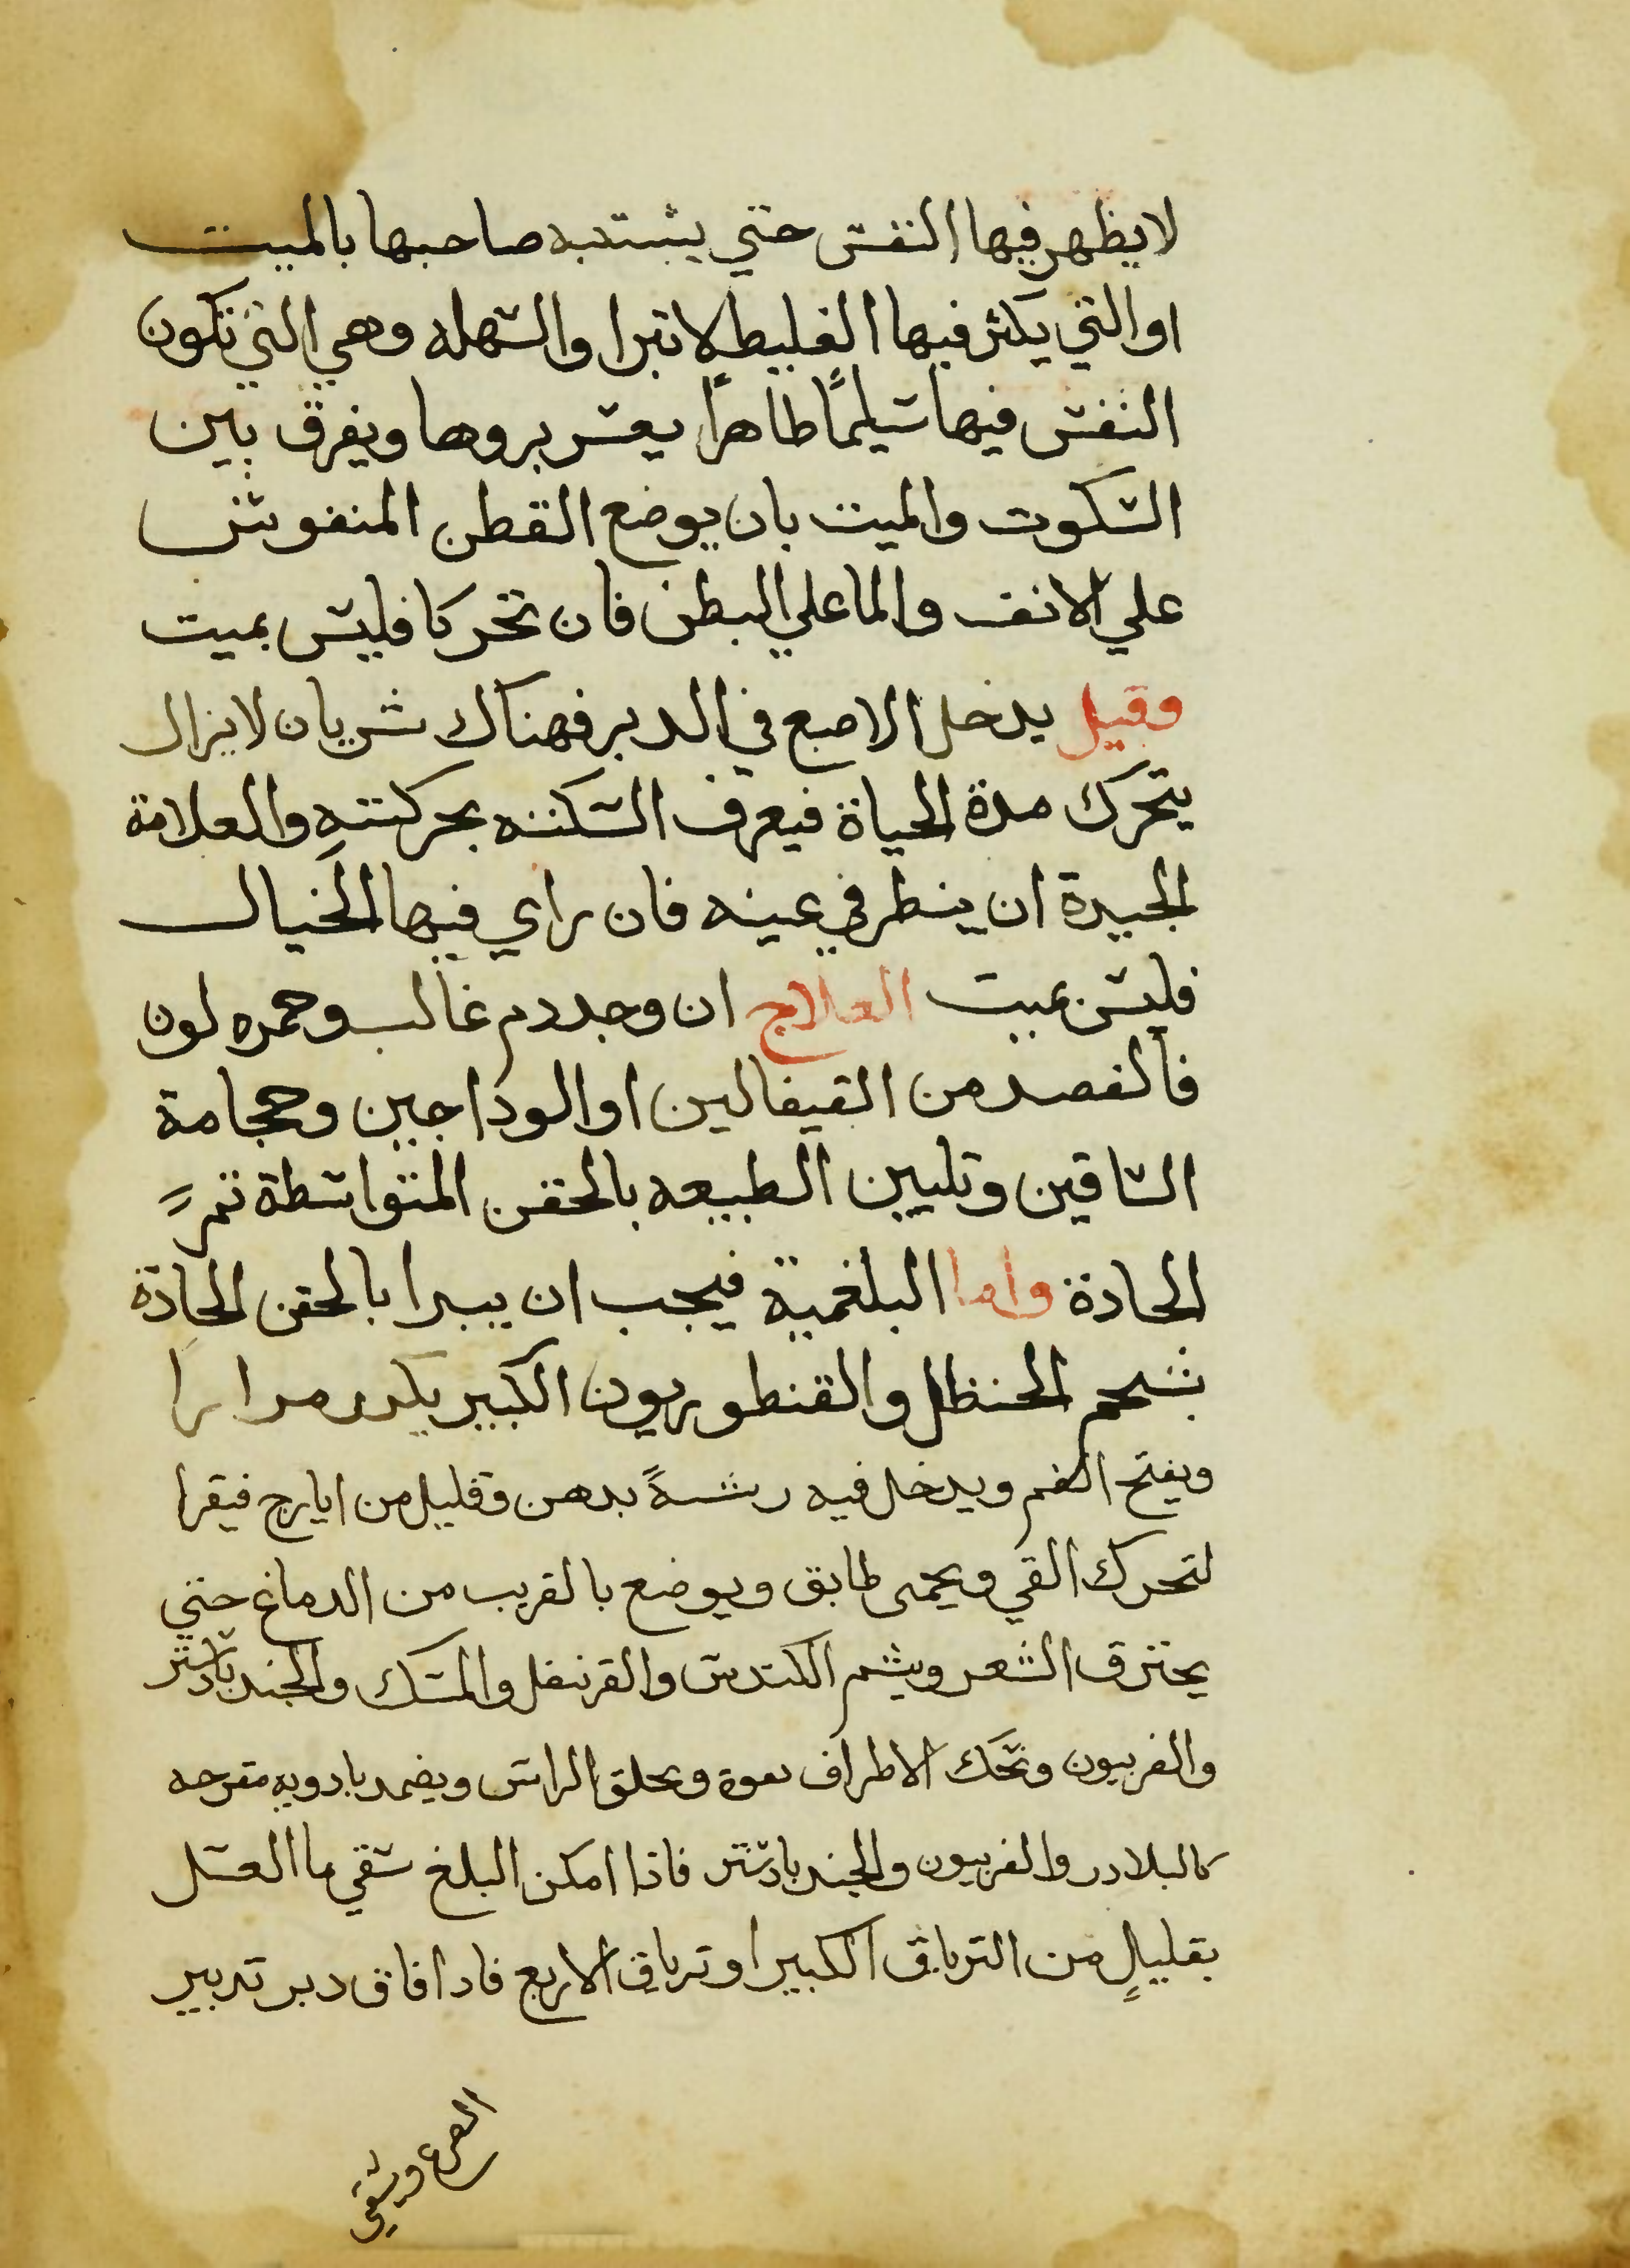 لا يظهر فيها النفس حتي يشتبه صاحبها بالميت
او التي يكثر فيها الغليط لا تبرا والسهله وهي التي تكون
النفس فيها سليمًا طاهرًا يعسر بروها ويفرق بين
السكوت والميت بان يوضع القطن المنفوش
علي الانف والما علي البطن فان تحركا فليس بميت
وقيل يدخل الاصبع في الدبر فهناك شريان لا يزال
يتحرك مدة الحياة فيعرف السكته بحركته والعلامة
الجيدة ان ينطر في عينه فان راي فيها الخيال
فليس بميت العلاج ان وجد دم غالب وحمره لون
فالفصد من القيفالين او الوداجين وحجامة
الساقين وتليين الطبيعه بالحقن المتواسطة ثم
الحادة واما البلغمية فيجب ان يبدا بالحقن الحادة
بشحم الحنظل والقنطوريون الكبير يكرر مرارا
ويفتح الفم ويدخل فيه ريشةً بدهن وقليل من ايارج فيقرا
لتحرك القي ويحمى طابق ويوضع بالقريب من الدماغ حتي
يحترق الشعر ويشم الكندس والقرنفل والمسك والجندبادستر
والفربيون وتحك الاطراف بقوة ويحلق الراس ويضمد بادويه مقرحه
كالبلادر والفربيون والجندبادستر فاذا امكن البلغ سقي ما العسل
بقليلٍ من الترياق الكبير او ترياق الاربع فادا افاق دبر تدبير
الصرع وسقي